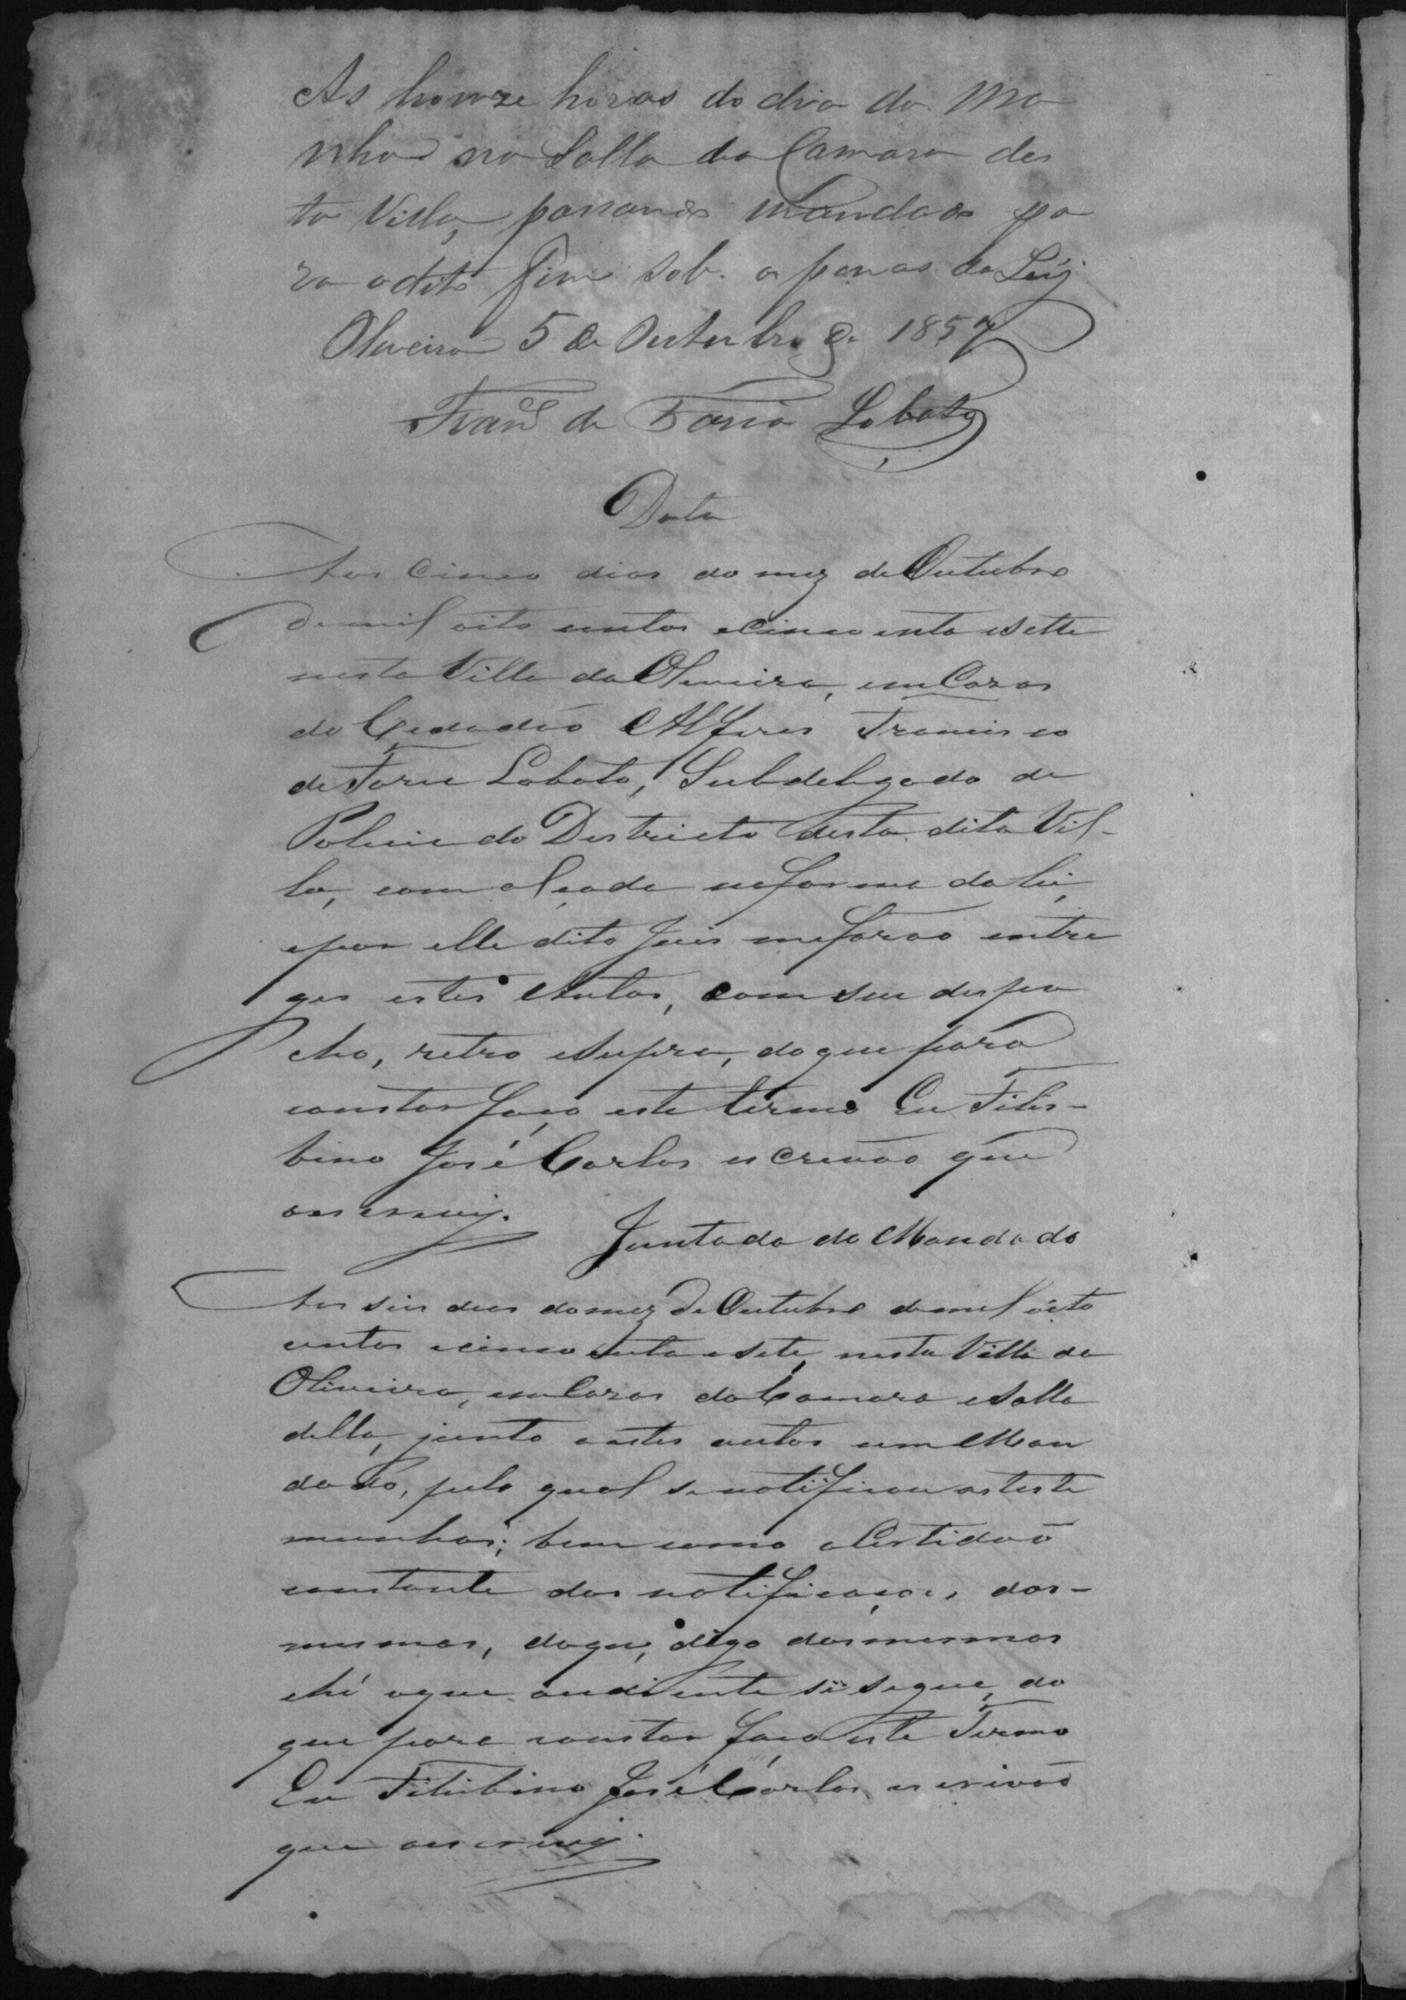 As honze horas do dia da Ma
nhã na Salla da Camara des
ta Villa, passando Mandado pa
ra o dito fim sob. a penas da Leij
Oliveira 5 de Outubro de 1857
Franco de Faria Lobato
Data
Aos Cinco dias do mez de Outubro
de mil oito centos e cincoenta e sette
nesta Villa da Oliveira, em Cazas
do Cidadão Alferes Francisco
de Faria Lobato, Subdelegado de
Policia do Destricto desta dita Vil-
la, com alçada na forma da lei,
e por elle dito Juis me forão entre
ges estes Autos, com seu despa
cho, retro e supra, do que para
constar faço este termo Eu Filis-
bino José Carlos escrevão que
o escrevij.
Juntada do Mandado
Aos seis dias do mez de Outubro de mil oito
centos e cincoenta e sete, nesta Villa da
Oliveira, em Cazas da Camara e Salla
della, junto a estes autos um Man
dado, pelo qual se notificou as teste
munhas; bem como a Certidaõ
constante das notificaçoes, das-
mesmas, do que, digo das mesmas
ehé o que a udiente se segue, do
que para constar faço este Termo
Eu Filisbino José Carlos escrivaõ
que o escrevij.